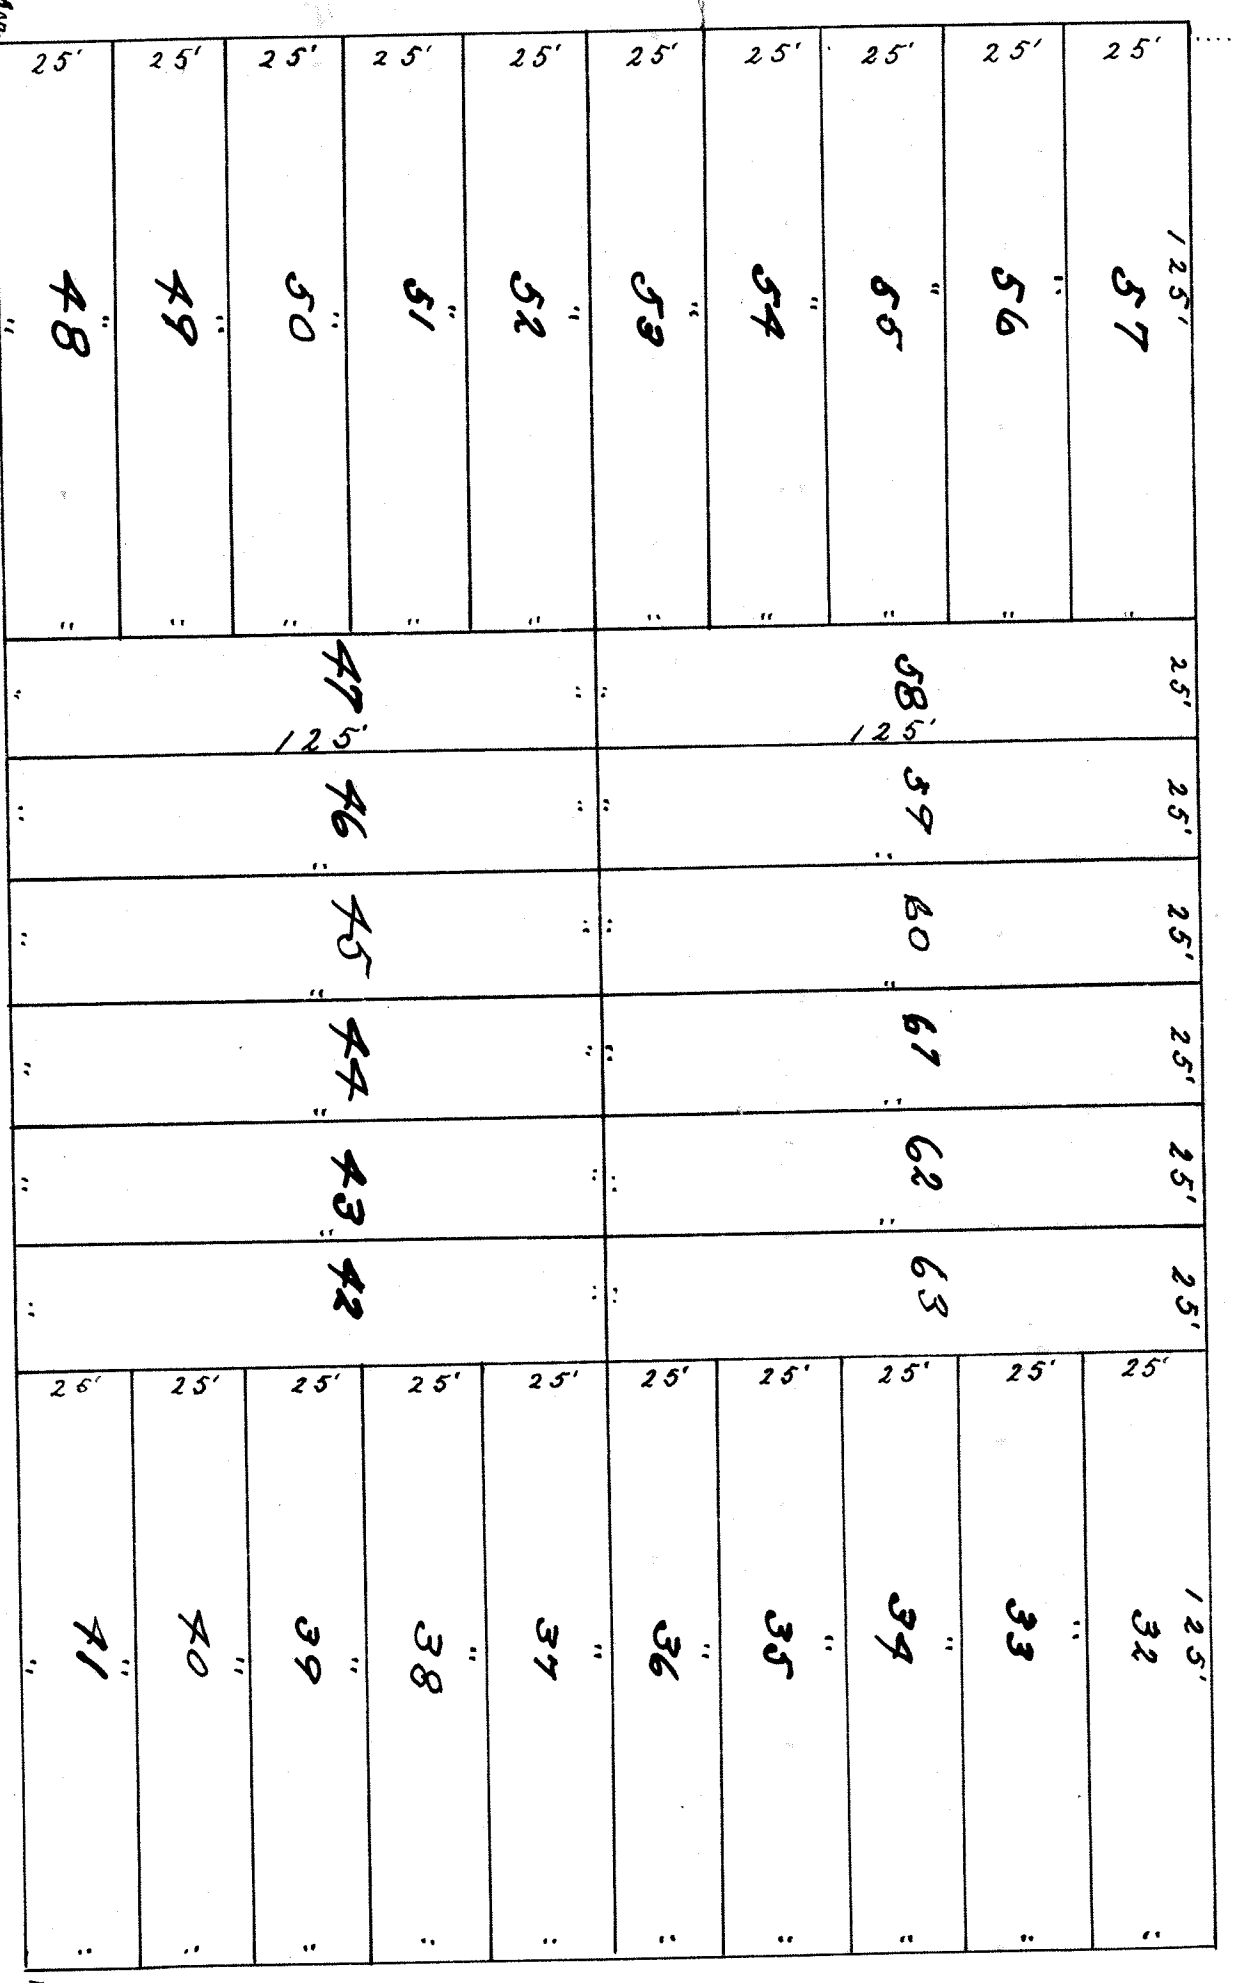 25' 25' 25' 25' 25' 25' 25' 25' 25' 25'
125'
48 49 50 51 52 53 54 55 56 57
" " " " " " " " " "
" " " " " " " " " "
47 58 25'
" " "
125' 125'
46 59 25'
" " " " "
45 60 25'
" " " " "
44 61 25'
" " " " "
43 62 25'
" " " " "
42 63 25'
" " "
25' 25' 25' 25' 25' 25' 25' 25' 25' 25'
125'
41 40 39 38 37 36 35 34 33 32
" " " " " " " " " "
" " " " " " " " " "